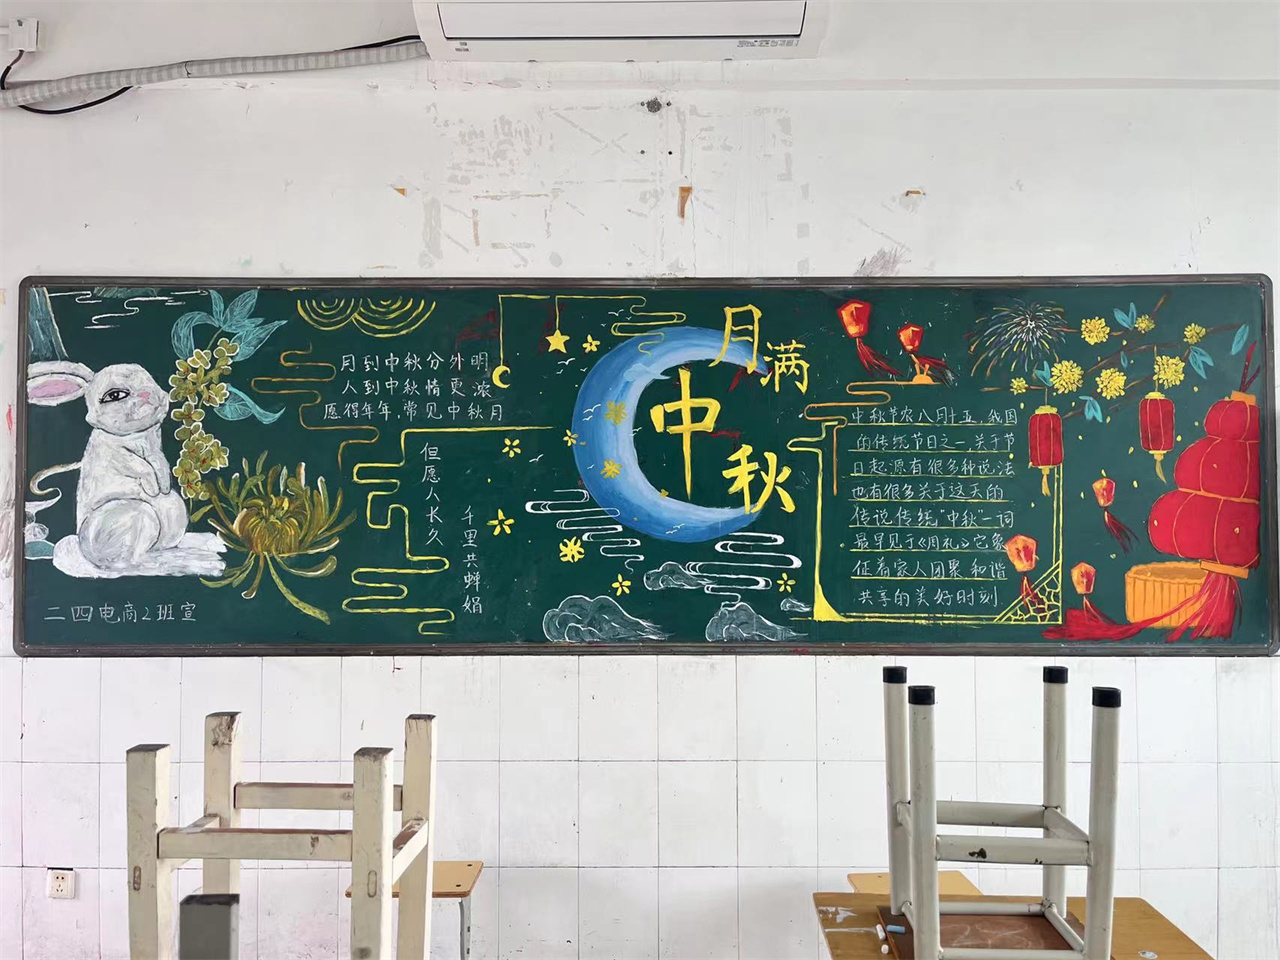 月到中秋分外明
人到中秋情更浓
愿得年年,常见中秋月
但愿人长久
千里共蝉娟
月满
中
秋
中秋节农八月十五,我国
的传统节日之一,关于节
日起源有很多种说法
也有很多关于这天的
传说传统"中秋"一词
最早见于《周礼》它象
征着家人团聚和谐
共享的美好时刻
二四电商2班宣